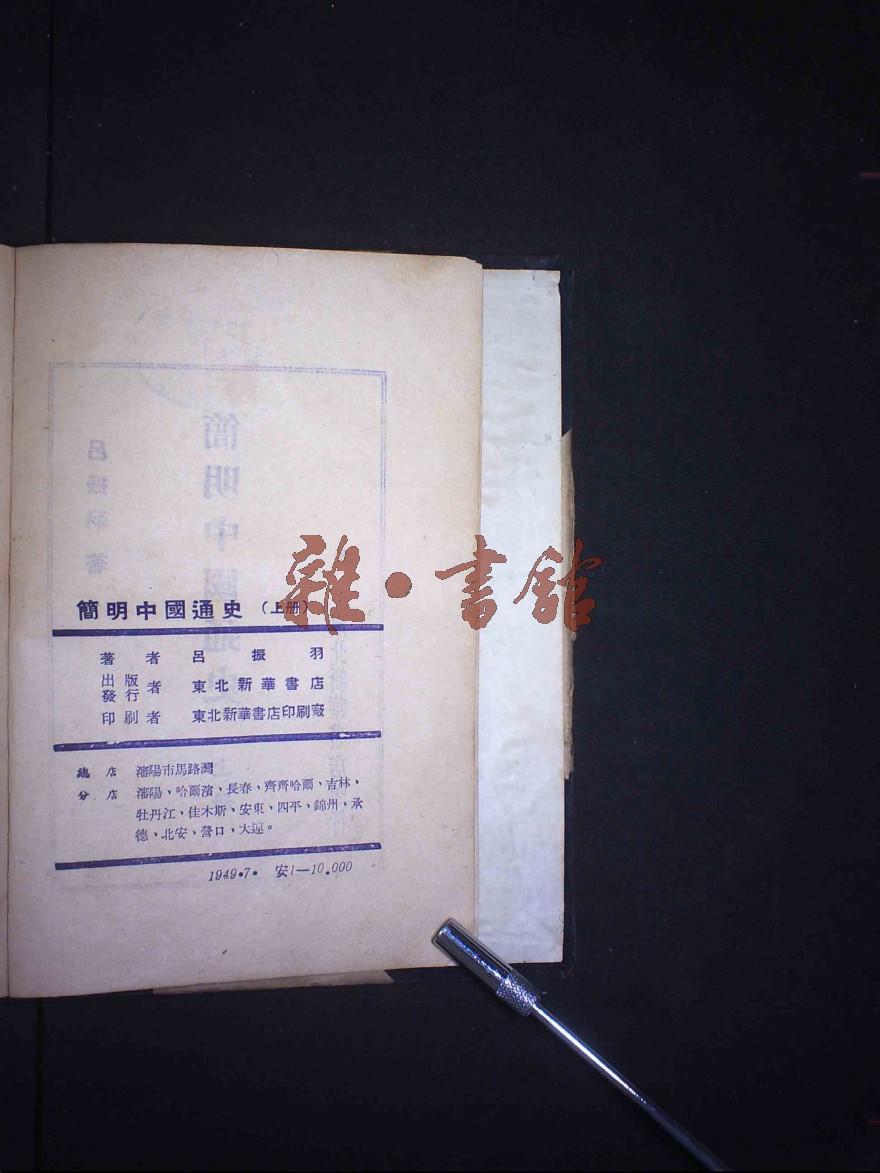 簡明中國通史（上册）
著者 呂振羽
出版發行者 東北新華書店
印刷者 東北新華書店印刷廠
總店 瀋陽市馬路灣
分店 瀋陽、哈爾濱、長春、齊齊哈爾、吉林、
牡丹江、佳木斯、安東、四平、錦州、承
德、北安、營口、大連。
1949•7• 安1—10.000
雜•書館
簡明中國通史
呂振羽著